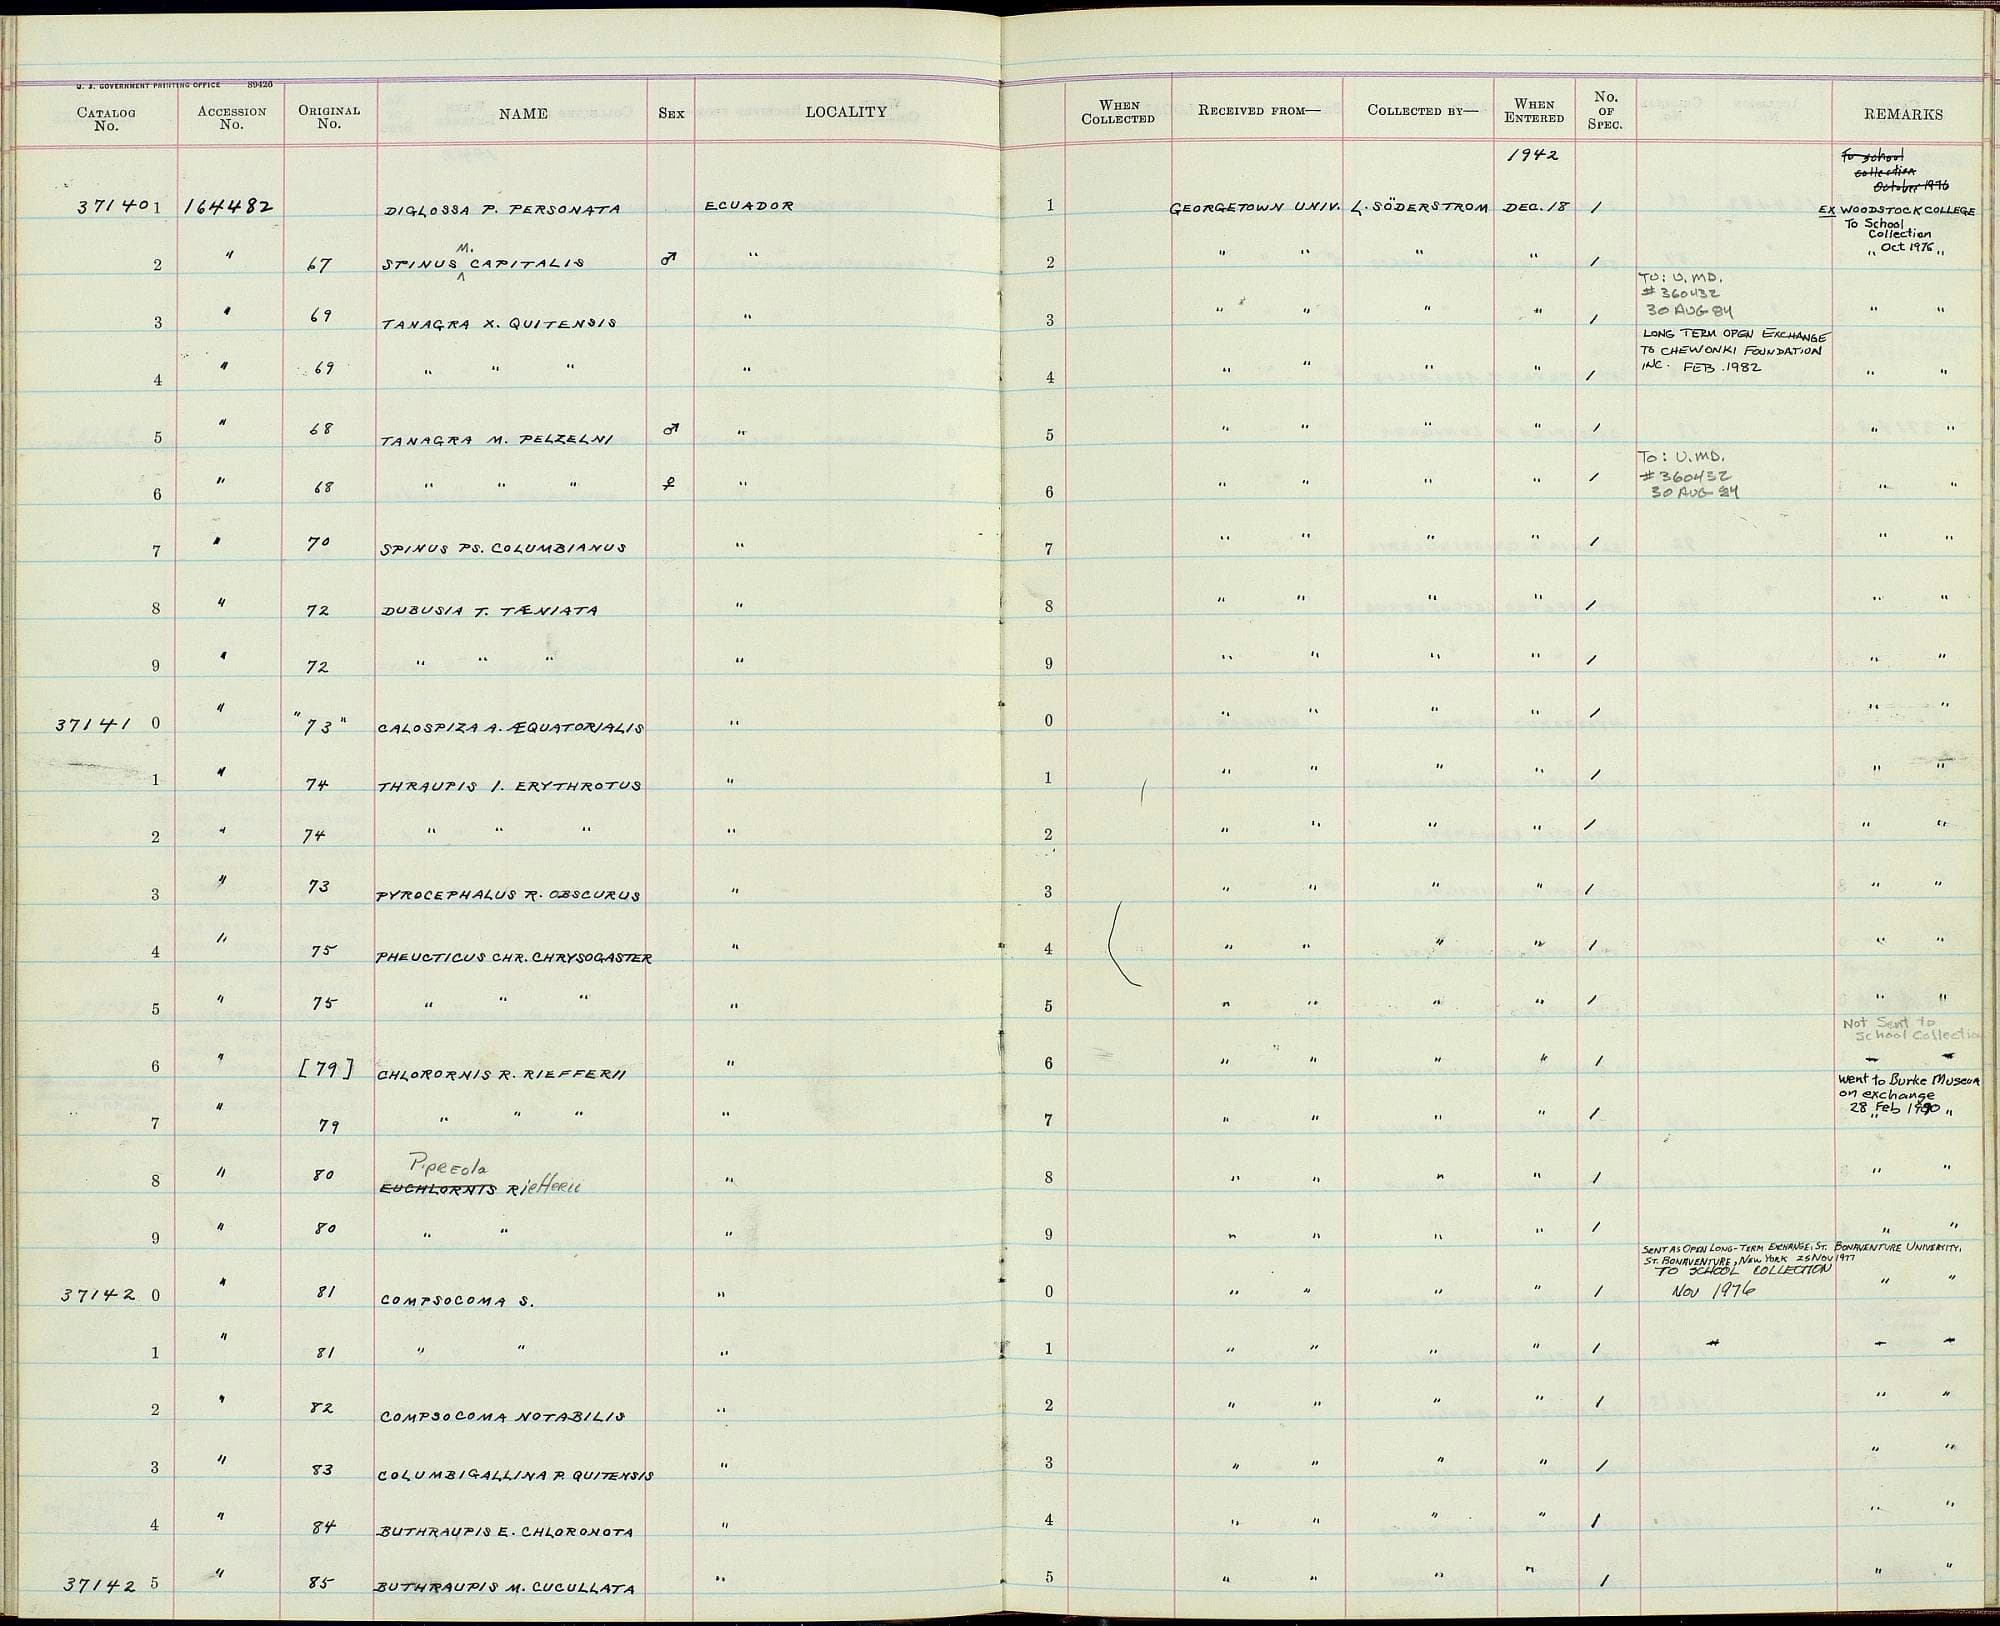 U. S. GOVERNMENT PRINTING OFFICE 89426
CATALOG No. ACCESSION No. ORIGINAL No. NAME SEX LOCALITY WHEN COLLECTED RECEIVED FROM— COLLECTED BY— WHEN ENTERED No. OF SPEC. REMARKS
1942 To school
collection
October 1976
371401 164482 DIGLOSSA P. PERSONATA ECUADOR 1 GEORGETOWN UNIV. L. SÖDERSTROM DEC. 18 1 EX WOODSTOCK COLLEGE
To School
Collection
Oct 1976
2 " 67 SPINUS M. CAPITALIS ♂ " 2 " " " " 1 " "
TO: U. MD.
#360432
30 AUG 84
3 " 69 TANAGRA X. QUITENSIS " 3 " " " " 1 " "
LONG TERM OPEN EXCHANGE
TO CHEWONKI FOUNDATION
INC. FEB. 1982
4 " 69 " " " " 4 " " " " 1 " "
5 " 68 TANAGRA M. PELZELNI ♂ " 5 " " " " 1 " "
To: U. MD.
#360432
30 AUG 84
6 " 68 " " " ♀ " 6 " " " " 1 " "
7 " 70 SPINUS PS. COLUMBIANUS " 7 " " " " 1 " "
8 " 72 DUBUSIA T. TÆNIATA " 8 " " " " 1 " "
9 " 72 " " " " 9 " " " " 1 " "
371410 " "73" CALOSPIZA A. ÆQUATORIALIS " 0 " " " " 1 " "
1 " 74 THRAUPIS I. ERYTHROTUS " 1 " " " " 1 " "
2 " 74 " " " " 2 " " " " 1 " "
3 " 73 PYROCEPHALUS R. OBSCURUS " 3 " " " " 1 " "
4 " 75 PHEUCTICUS CHR. CHRYSOGASTER " 4 " " " " 1 " "
5 " 75 " " " " 5 " " " " 1 " "
Not Sent to
School Collection
6 " [79] CHLORORNIS R. RIEFFERII " 6 " " " " 1 " "
went to Burke Museum
on exchange
28 Feb 1990
7 " 79 " " " " 7 " " " " 1 " "
Pipreola
8 " 80 EUCHLORNIS Riefferii " 8 " " " " 1 " "
9 " 80 " " " 9 " " " " 1 " "
SENT AS OPEN LONG-TERM EXCHANGE, ST. BONAVENTURE UNIVERSITY,
ST. BONAVENTURE, NEW YORK 25 NOV 1977
TO SCHOOL COLLECTION
NOV 1976
371420 " 81 COMPSOCOMA S. " 0 " " " " 1 " "
1 " 81 " " " 1 " " " " 1 " " "
2 " 82 COMPSOCOMA NOTABILIS " 2 " " " " 1 " "
3 " 83 COLUMBIGALLINA P. QUITENSIS " 3 " " " " 1 " "
4 " 84 BUTHRAUPIS E. CHLORONOTA " 4 " " " " 1 " "
371425 " 85 BUTHRAUPIS M. CUCULLATA " 5 " " " " 1 " "